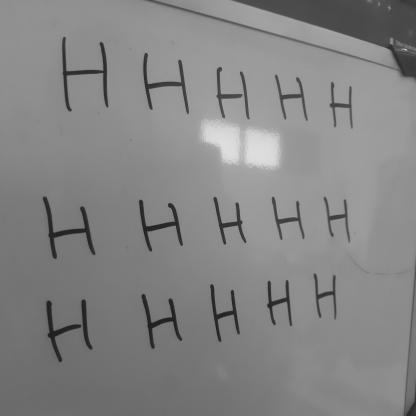 H H H H H
H H H H H
H H H H H